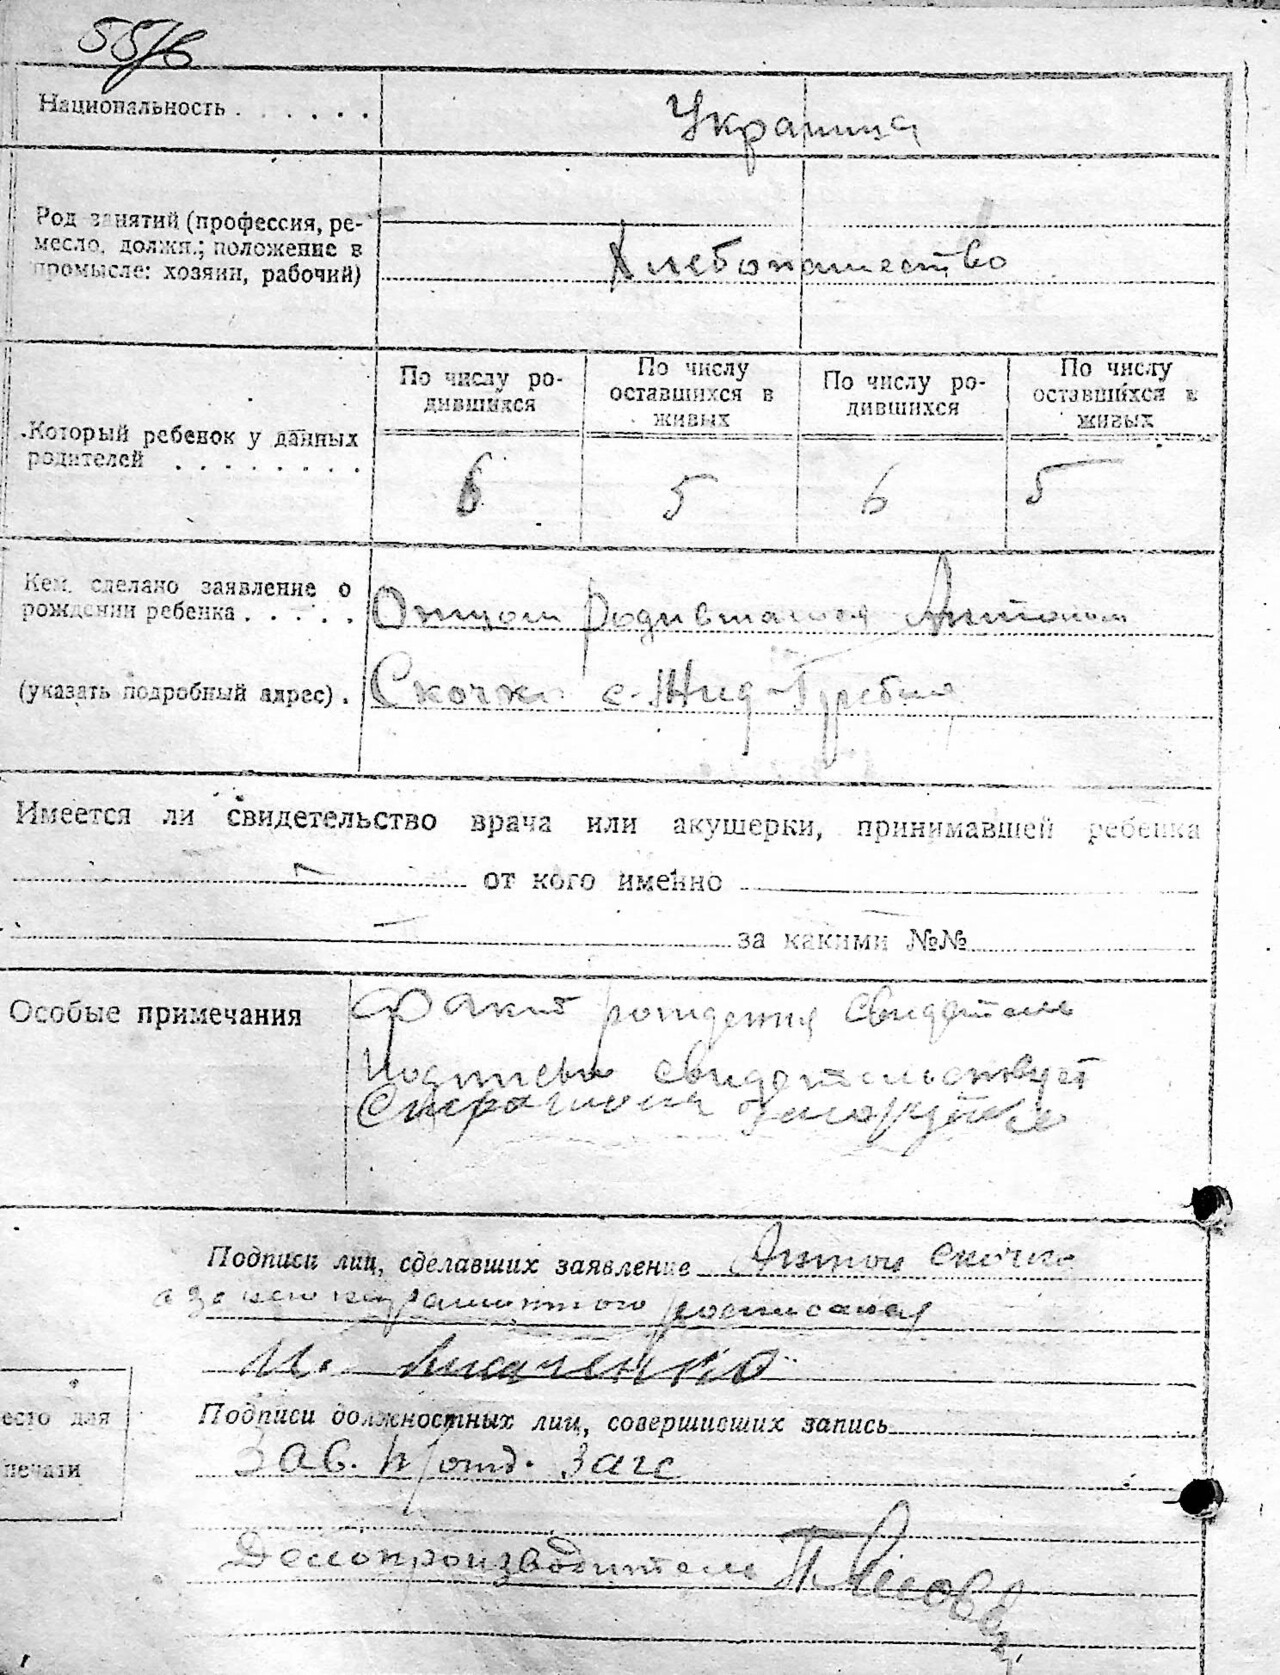 55/6
Национальность . . . . . . Украинца
Род занятий (профессия, ре-
месло, должн.; положение в
промысле: хозяин, рабочий)
Хлебопашество
Который ребенок у данных
родителей . . . . . . . .
По числу ро-
дившихся
По числу
оставшихся в
живых
По числу ро-
дившихся
По числу
оставшихся в
живых
6 5 6 5
Кем сделано заявление о
рождении ребенка . . . . .
Отцом родившагося Антоном
(указать подробный адрес) . Скочко с. Жид-Гребля
Имеется ли свидетельство врача или акушерки, принимавшей ребенка
от кого именно
за какими №№
Особые примечания
Факт рождения свидетель
подписью свидетельствует
Подписи лиц, сделавших заявление Антон Скочко
а за него неграмотного росписался
И.
Подписи должностных лиц, совершивших запись
Зав. п/отд. Загс
есто для
печати
Делопроизводитель